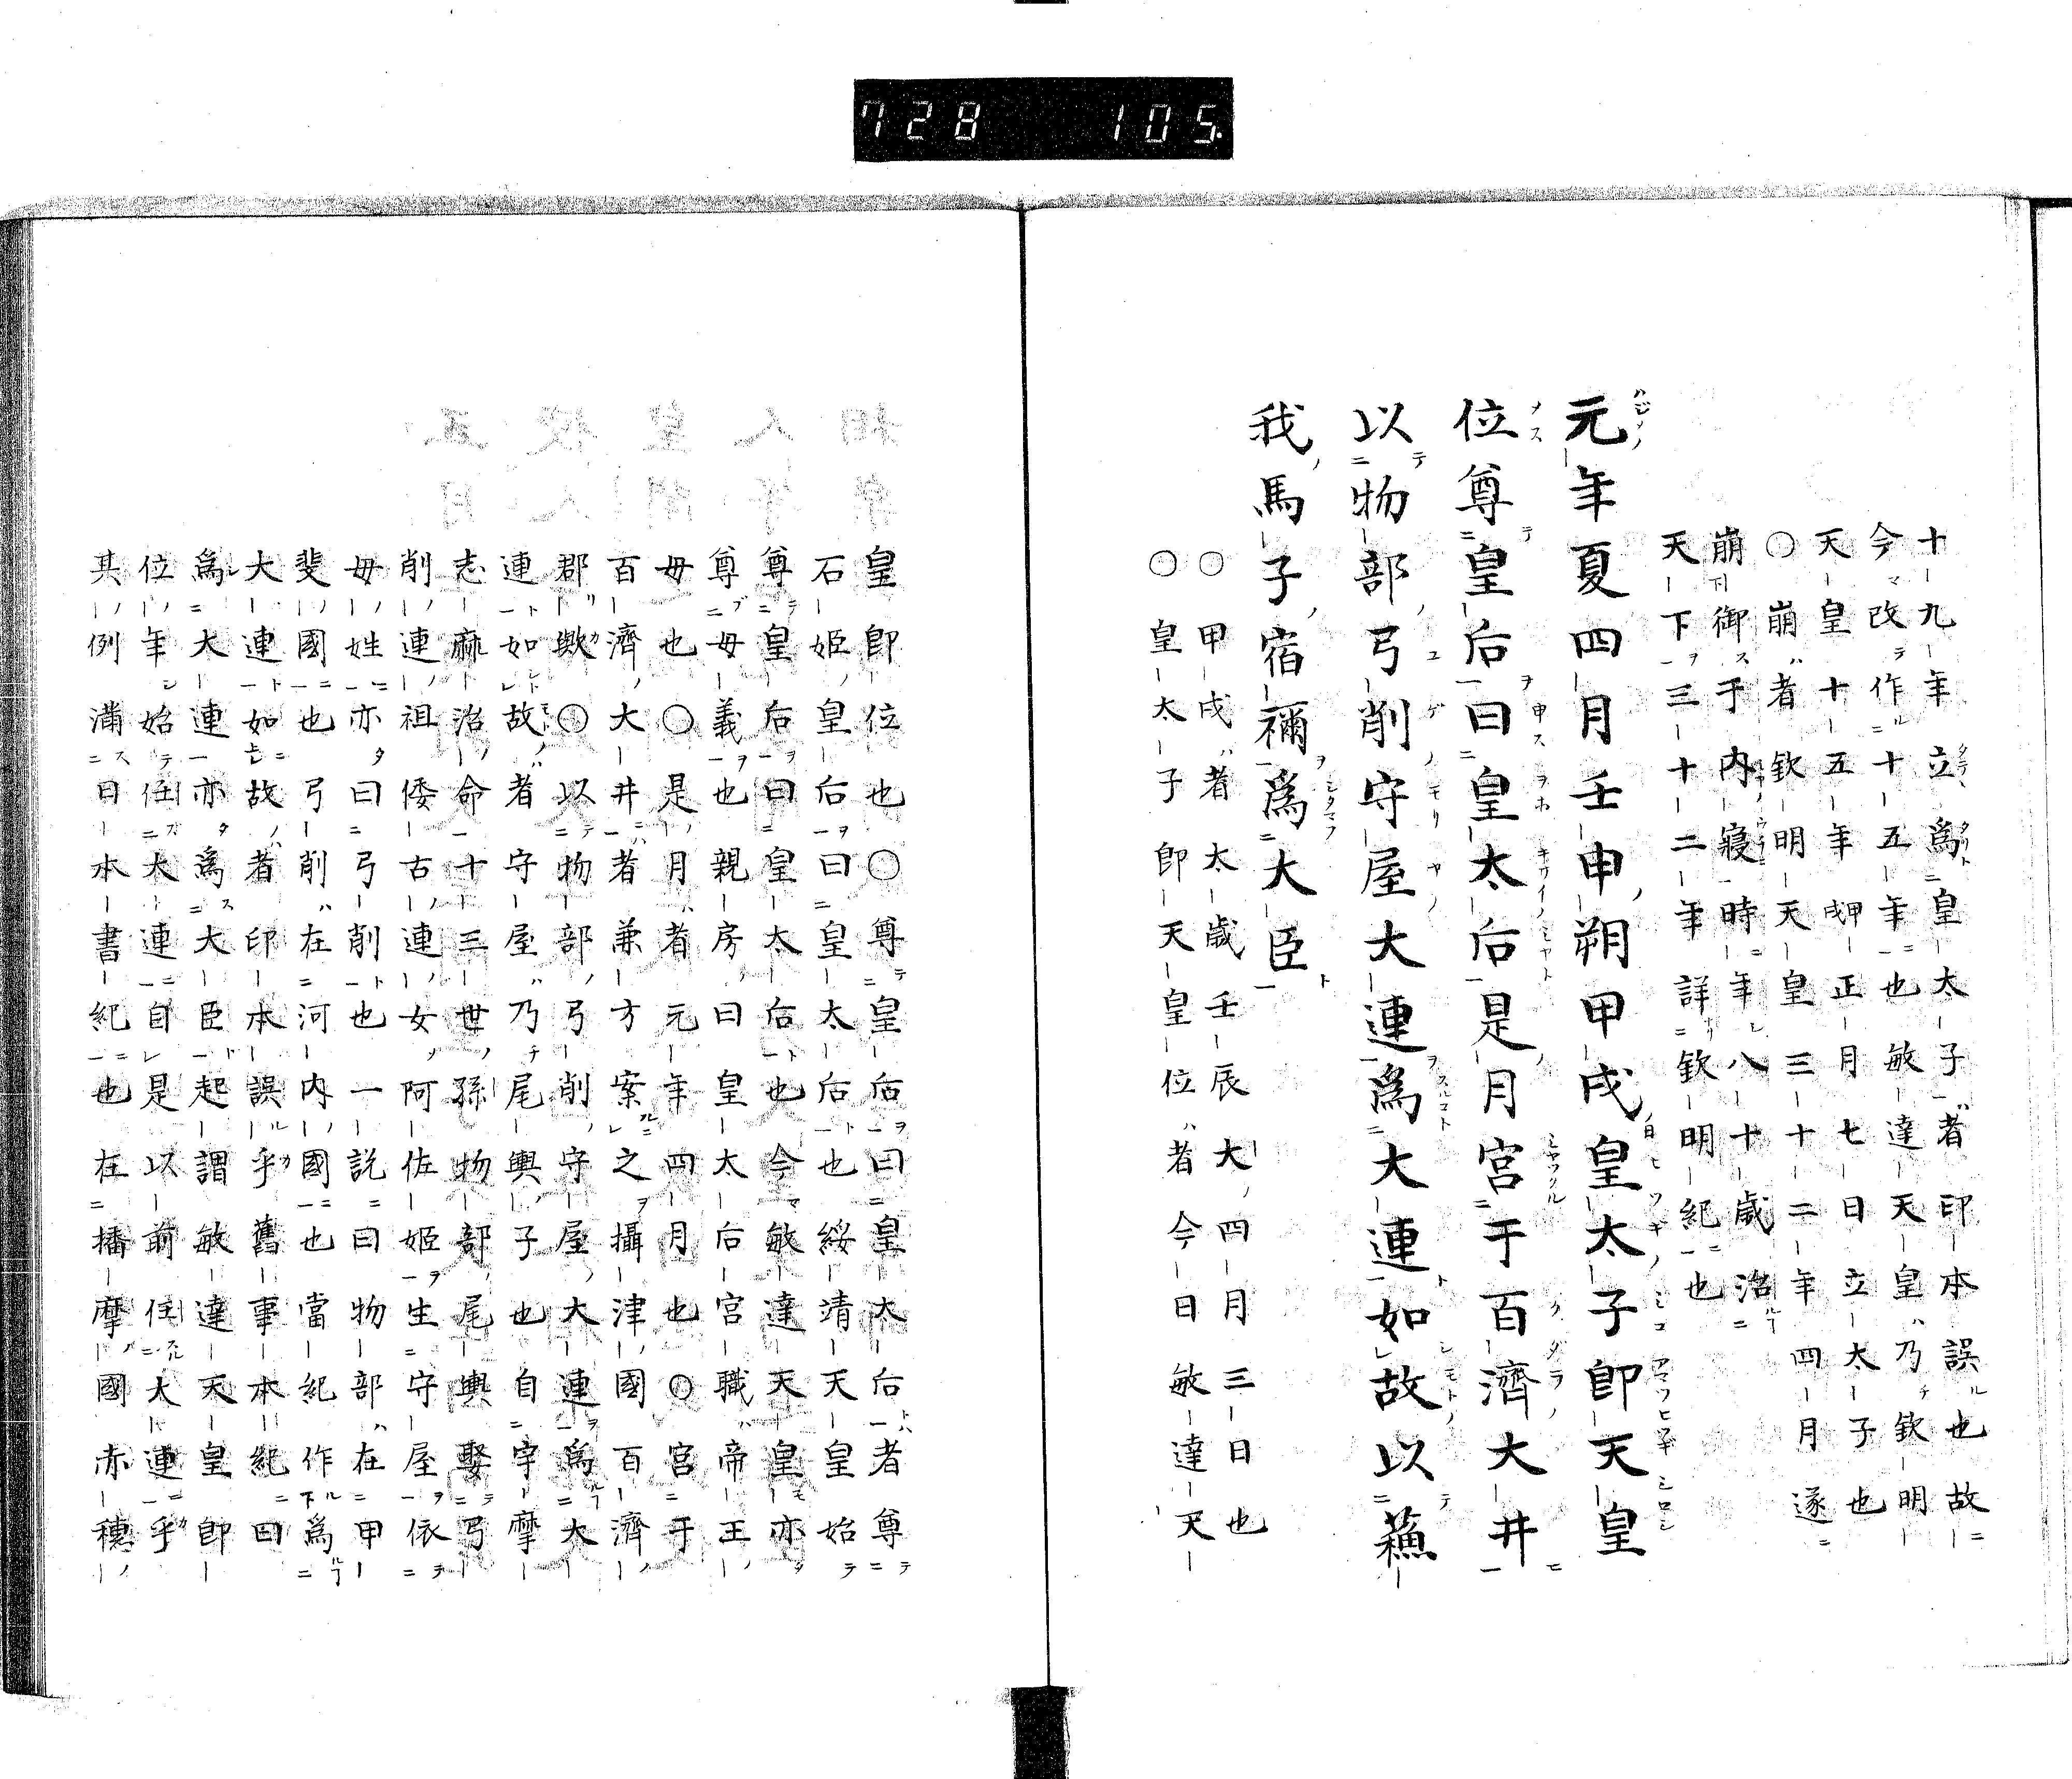 728 105.
十九年立爲皇太子者印本誤也故
今改作十五年也敏達天皇乃欽明
天皇十五年甲戌正月七日立太子也
○崩者欽明天皇三十二年四月遂
崩御于内寢時年八十歳治
天下三十二年詳欽明紀也
元年夏四月壬申朔甲戌皇太子卽天皇
位尊皇后曰皇太后是月宮于百濟大井
以物部弓削守屋大連爲大連如故以蘓
我馬子宿禰爲大臣
○甲戌者太歳壬辰大四月三日也
○皇太子卽天皇位者今日敏達天
皇卽位也○尊皇后曰皇太后者尊
石姫皇后曰皇太后也綏靖天皇始
尊皇后曰皇太后也今敏達天皇亦
尊母義也親房曰皇太后宮職帝王
母也○是月者元年四月也○宮于
百濟大井者兼方案之攝津國百濟
郡歟○以物部弓削守屋大連爲大
連如故者守屋乃尾輿子也自宇摩
志麻治命十三世孫物部尾輿娶弓
削連祖倭古連女阿佐姫生守屋依
母姓亦曰弓削也一説曰物部在甲
斐國也弓削在河内國也當紀作爲
大連如故者印本誤乎舊事本紀曰
爲大連亦爲大臣起謂敏達天皇卽
位年始任大連自是以前任大連乎
其例滿日本書紀也在播摩國赤穂